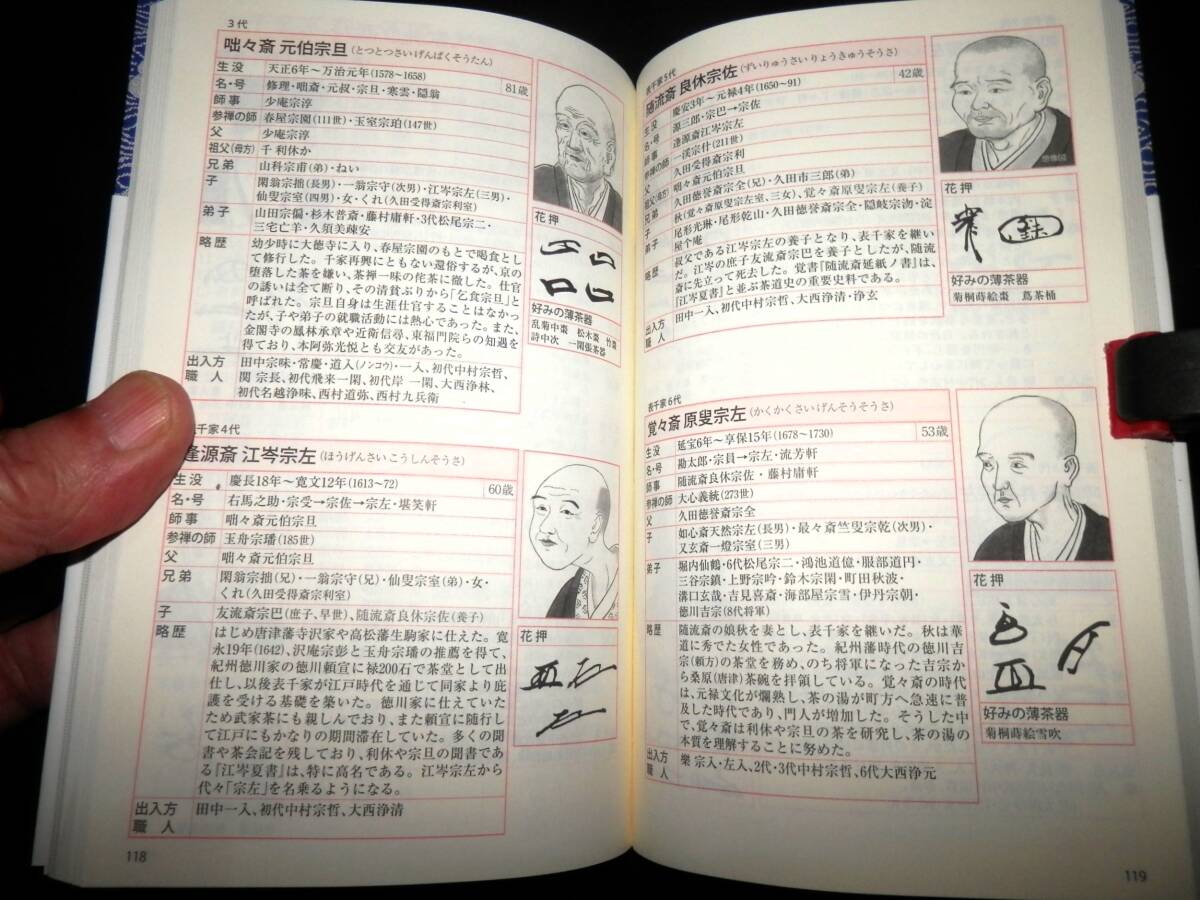 3代
咄々斎 元伯宗旦(とつとつさい げんぱくそうたん)
生没 天正6年～万治元年(1578～1658) 81歳
名・号 修理・咄斎・元叔・宗旦・寒雲・隠翁
師事 少庵宗淳
参禅の師 春屋宗園(111世)・玉室宗珀(147世)
父 少庵宗淳
祖父(母方) 千利休か
兄弟 山科宗甫(弟)・ねい
子 閑翁宗拙(長男)・一翁宗守(次男)・江岑宗左(三男)・
仙叟宗室(四男)・女・くれ(久田受得斎宗利室)
弟子 山田宗偏・杉木普斎・藤村庸軒・3代松尾宗二・
三宅亡羊・久須美疎安
略歴 幼少時に大徳寺に入り、春屋宗園のもとで喝食とし
て修行した。千家再興にともない還俗するが、京の
堕落した茶を嫌い、茶禅一味の侘茶に徹した。仕官
の誘いは全て断り、その清貧ぶりから『乞食宗旦』と
呼ばれた。宗旦自身は生涯仕官することはなかっ
たが、子や弟子の就職活動には熱心であった。また、
金閣寺の鳳林承章や近衛信尋、東福門院らの知遇を
得ており、本阿弥光悦とも交友があった。
出入方職人 田中宗味・常慶・道入(ノンコウ)・一入、初代中村宗哲、
関 宗長、初代飛来一閑、初代岸 一閑、大西浄林、
初代名越浄味、西村道弥、西村九兵衛
花押
好みの薄茶器
乱菊中棗 松木棗 竹棗
詩中次 一閑張茶器
表千家4代
逢源斎 江岑宗左(ほうげんさい こうしんそうさ)
生没 慶長18年～寛文12年(1613～72) 60歳
名・号 右馬之助・宗受→宗佐→宗左・堪笑軒
師事 咄々斎元伯宗旦
参禅の師 玉舟宗璠(185世)
父 咄々斎元伯宗旦
兄弟 閑翁宗拙(兄)・一翁宗守(兄)・仙叟宗室(弟)・女・
くれ(久田受得斎宗利室)
子 友流斎宗巴(庶子、早世)、随流斎良休宗佐(養子)
略歴 はじめ唐津藩寺沢家や高松藩生駒家に仕えた。寛
永19年(1642)、沢庵宗彭と玉舟宗璠の推薦を得て、
紀州徳川家の徳川頼宣に禄200石で茶堂として出
仕し、以後表千家が江戸時代を通じて同家より庇
護を受ける基礎を築いた。徳川家に仕えていた
ため武家茶にも親しんでおり、また頼宣に随行し
て江戸にもかなりの期間滞在していた。多くの聞
書や茶会記を残しており、利休や宗旦の聞書であ
る『江岑夏書』は、特に高名である。江岑宗左から
代々「宗左」を名乗るようになる。
出入方職人 田中一入、初代中村宗哲、大西浄清
花押
118
表千家5代
随流斎 良休宗佐(ずいりゅうさい りょうきゅうそうさ)
生没 慶安3年～元禄4年(1650～91) 42歳
名・号 源三郎・宗巴→宗佐
師事 逢源斎江岑宗左
参禅の師 一渓宗什(211世)
父 久田受得斎宗利
祖父(母方) 咄々斎元伯宗旦
兄弟 久田徳誉斎宗全(兄)・久田市三郎(弟)
子 秋(覚々斎原叟宗左室、三女)、覚々斎原叟宗左(養子)
弟子 尾形光琳・尾形乾山・久田徳誉斎宗全・隠岐宗沕・淀
屋个庵
略歴 叔父である江岑宗左の養子となり、表千家を継い
だ。江岑の庶子友流斎宗巴を養子としたが、随流
斎に先立って死去した。覚書『随流斎延紙ノ書』は、
『江岑夏書』と並ぶ茶道史の重要史料である。
出入方職人 田中一入、初代中村宗哲、大西浄清・浄玄
想像図
花押
好みの薄茶器
菊桐蒔絵棗 蔦茶桶
表千家6代
覚々斎 原叟宗左(かくかくさい げんそうそうさ)
生没 延宝6年～享保15年(1678～1730) 53歳
名・号 勘太郎・宗員→宗左・流芳軒
師事 随流斎良休宗佐・藤村庸軒
参禅の師 大心義統(273世)
父 久田徳誉斎宗全
子 如心斎天然宗左(長男)・最々斎竺叟宗乾(次男)・
又玄斎一燈宗室(三男)
弟子 堀内仙鶴・6代松尾宗二・鴻池道億・服部道円・
三谷宗鎮・上野宗吟・鈴木宗閑・町田秋波・
溝口玄哉・吉見喜斎・海部屋宗雪・伊丹宗朝・
徳川吉宗(8代将軍)
略歴 随流斎の娘秋を妻とし、表千家を継いだ。秋は華
道に秀でた女性であった。紀州藩時代の徳川吉
宗(頼方)の茶堂を務め、のち将軍になった吉宗か
ら桑原(唐津)茶碗を拝領している。覚々斎の時代
は、元禄文化が爛熟し、茶の湯が町方へ急速に普
及した時代であり、門人が増加した。そうした中
で、覚々斎は利休や宗旦の茶を研究し、茶の湯の
本質を理解することに努めた。
出入方職人 樂 宗入・左入、2代・3代中村宗哲、6代大西浄元
花押
好みの薄茶器
菊桐蒔絵雪吹
119